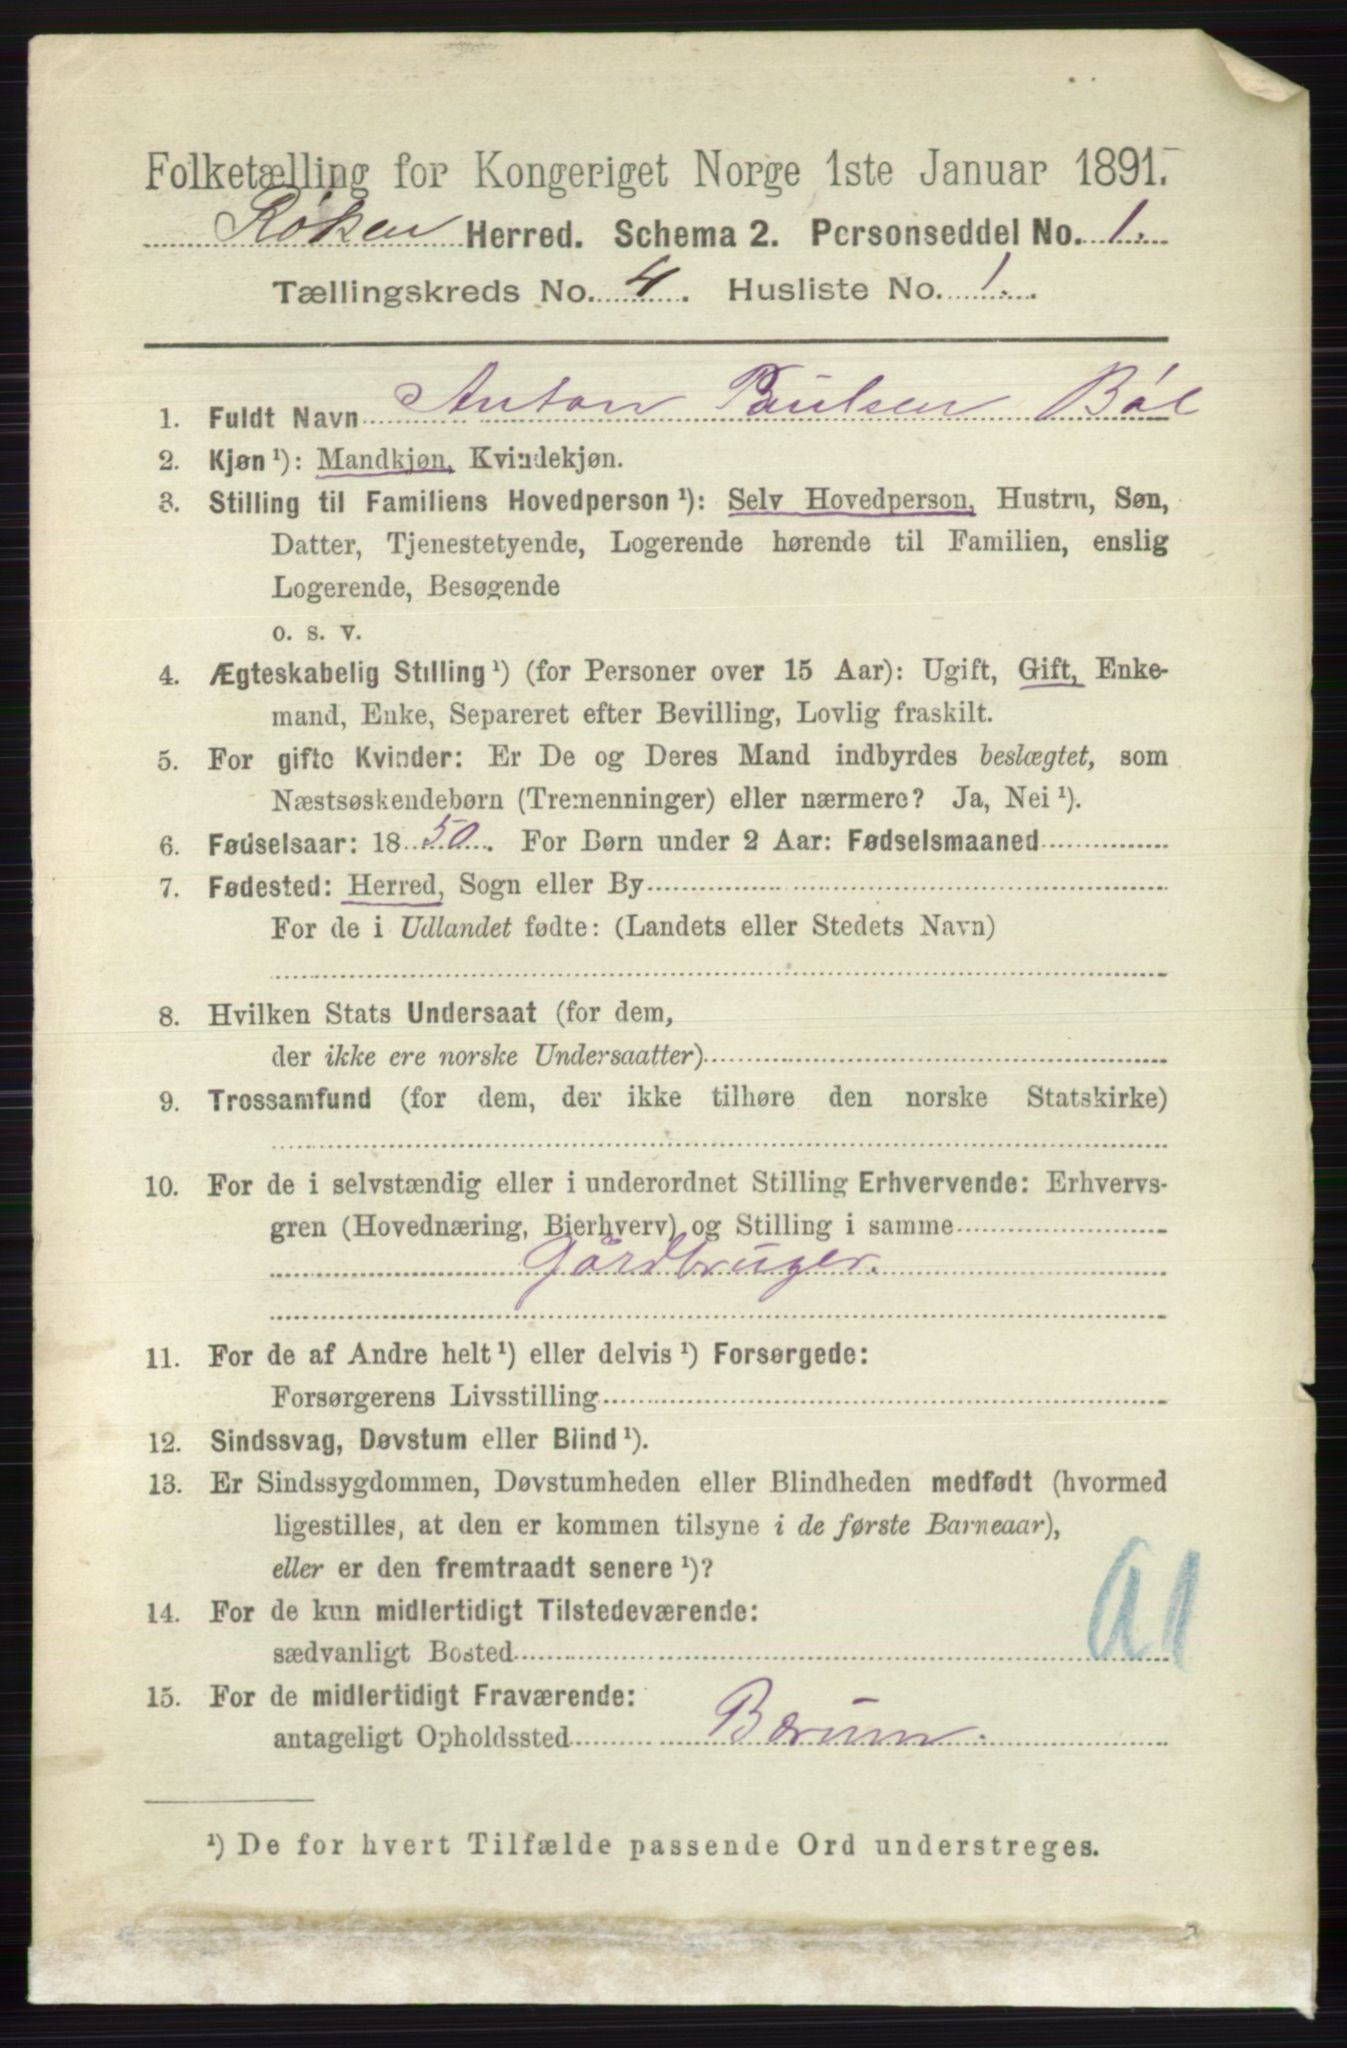 Folketælling for Kongeriget Norge 1ste Januar 1891.
Røken Herred. Schema 2. Personseddel No. 1.
Tællingskreds No. 4. Husliste No. 1.
1. Fuldt Navn Anton Paulsen Bøl
2. Kjøn ¹): Mandkjøn, Kvindekjøn.
3. Stilling til Familiens Hovedperson ¹): Selv Hovedperson, Hustru, Søn,
Datter, Tjenestetyende, Logerende hørende til Familien, enslig
Logerende, Besøgende
o. s. v.
4. Ægteskabelig Stilling ¹) (for Personer over 15 Aar): Ugift, Gift, Enke-
mand, Enke, Separeret efter Bevilling, Lovlig fraskilt.
5. For gifte Kvinder: Er De og Deres Mand indbyrdes beslægtet, som
Næstsøskendebørn (Tremenninger) eller nærmere? Ja, Nei ¹).
6. Fødselsaar: 1850. For Børn under 2 Aar: Fødselsmaaned
7. Fødested: Herred, Sogn eller By
For de i Udlandet fødte: (Landets eller Stedets Navn)
8. Hvilken Stats Undersaat (for dem,
der ikke ere norske Undersaatter)
9. Trossamfund (for dem, der ikke tilhøre den norske Statskirke)
10. For de i selvstændig eller i underordnet Stilling Erhvervende: Erhvervs-
gren (Hovednæring, Bierhverv) og Stilling i samme
Gårdbruger.
11. For de af Andre helt ¹) eller delvis ¹) Forsørgede:
Forsørgerens Livsstilling
12. Sindssvag, Døvstum eller Blind ¹).
13. Er Sindssygdommen, Døvstumheden eller Blindheden medfødt (hvormed
ligestilles, at den er kommen tilsyne i de første Barneaar),
eller er den fremtraadt senere ¹)?
14. For de kun midlertidigt Tilstedeværende:
sædvanligt Bosted
a1
15. For de midlertidigt Fraværende:
antageligt Opholdssted Bærum.
¹) De for hvert Tilfælde passende Ord understreges.